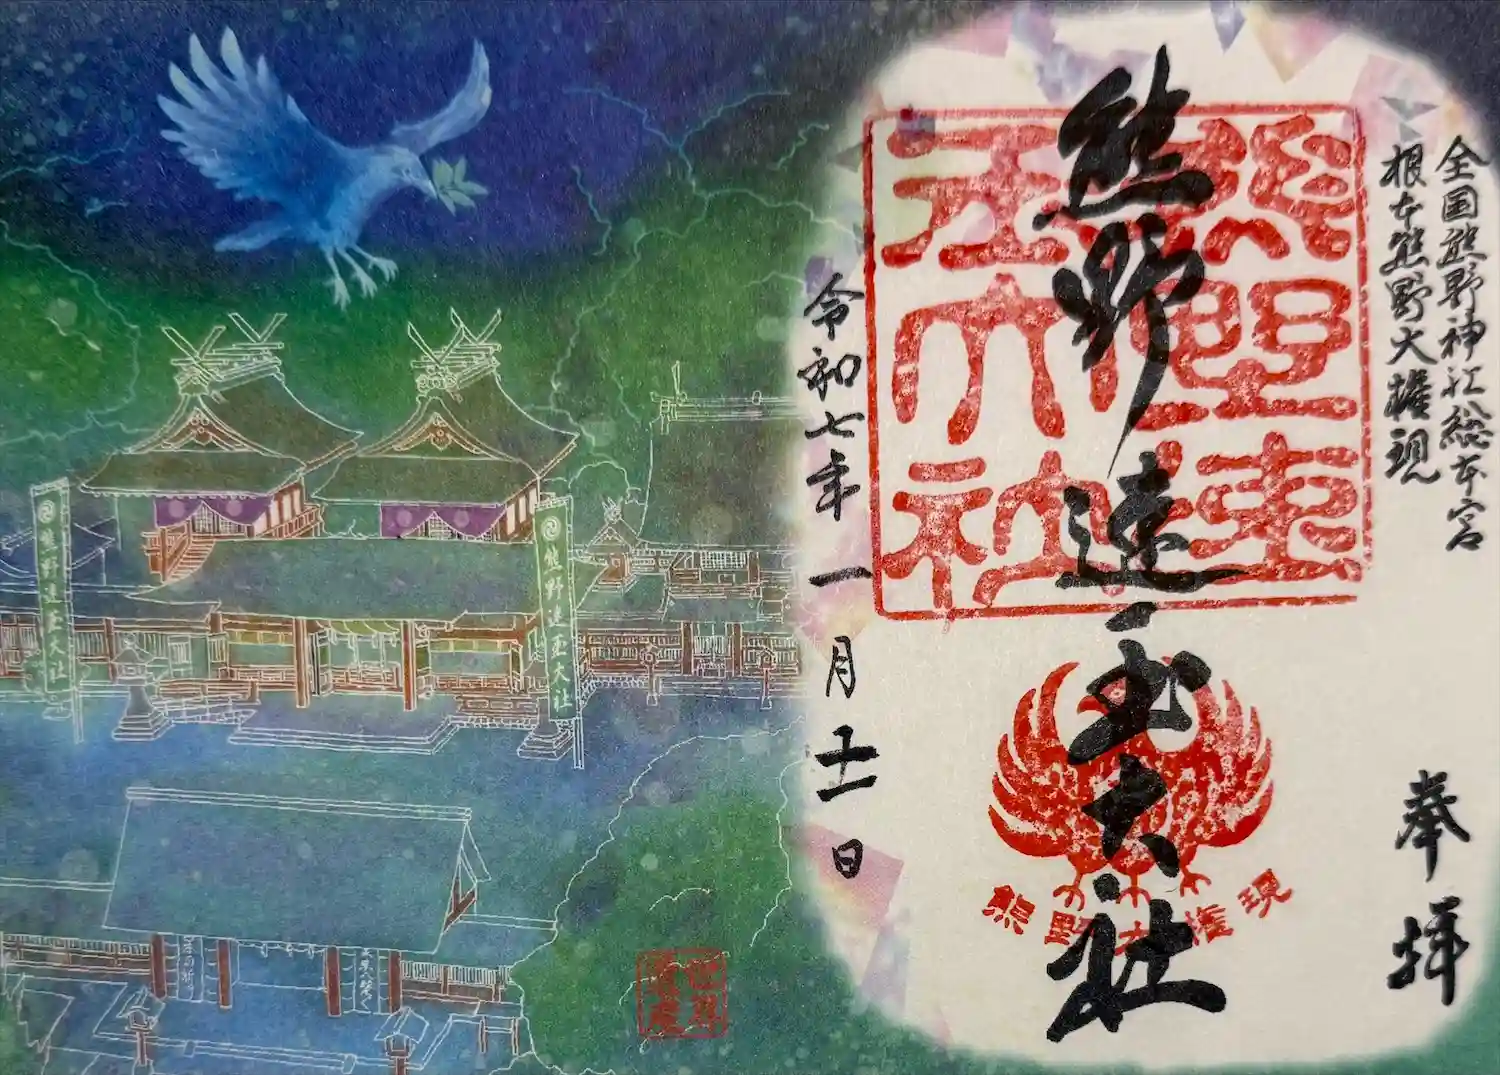 全国熊野神社総本宮
根本熊野大権現
奉拝
熊野速玉大社
熊野速玉大社
熊野大権現
令和七年一月十一日
熊野速玉大社
熊野速玉大社
世界遺産